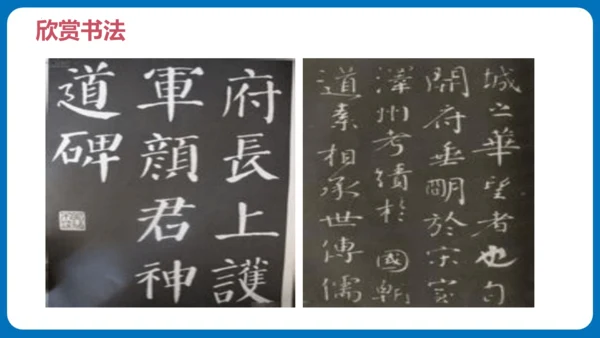 欣赏书法
府長上護
軍顔君神
道碑
城之華望者也自
開府垂明於宋室
澤州考績於國朝
道素相承世傳儒